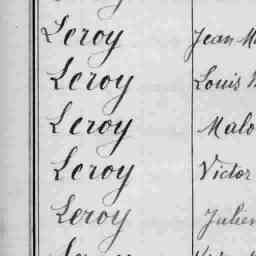 Leroy Jean
Leroy Louis
Leroy Malo
Leroy Victor
Leroy Julien